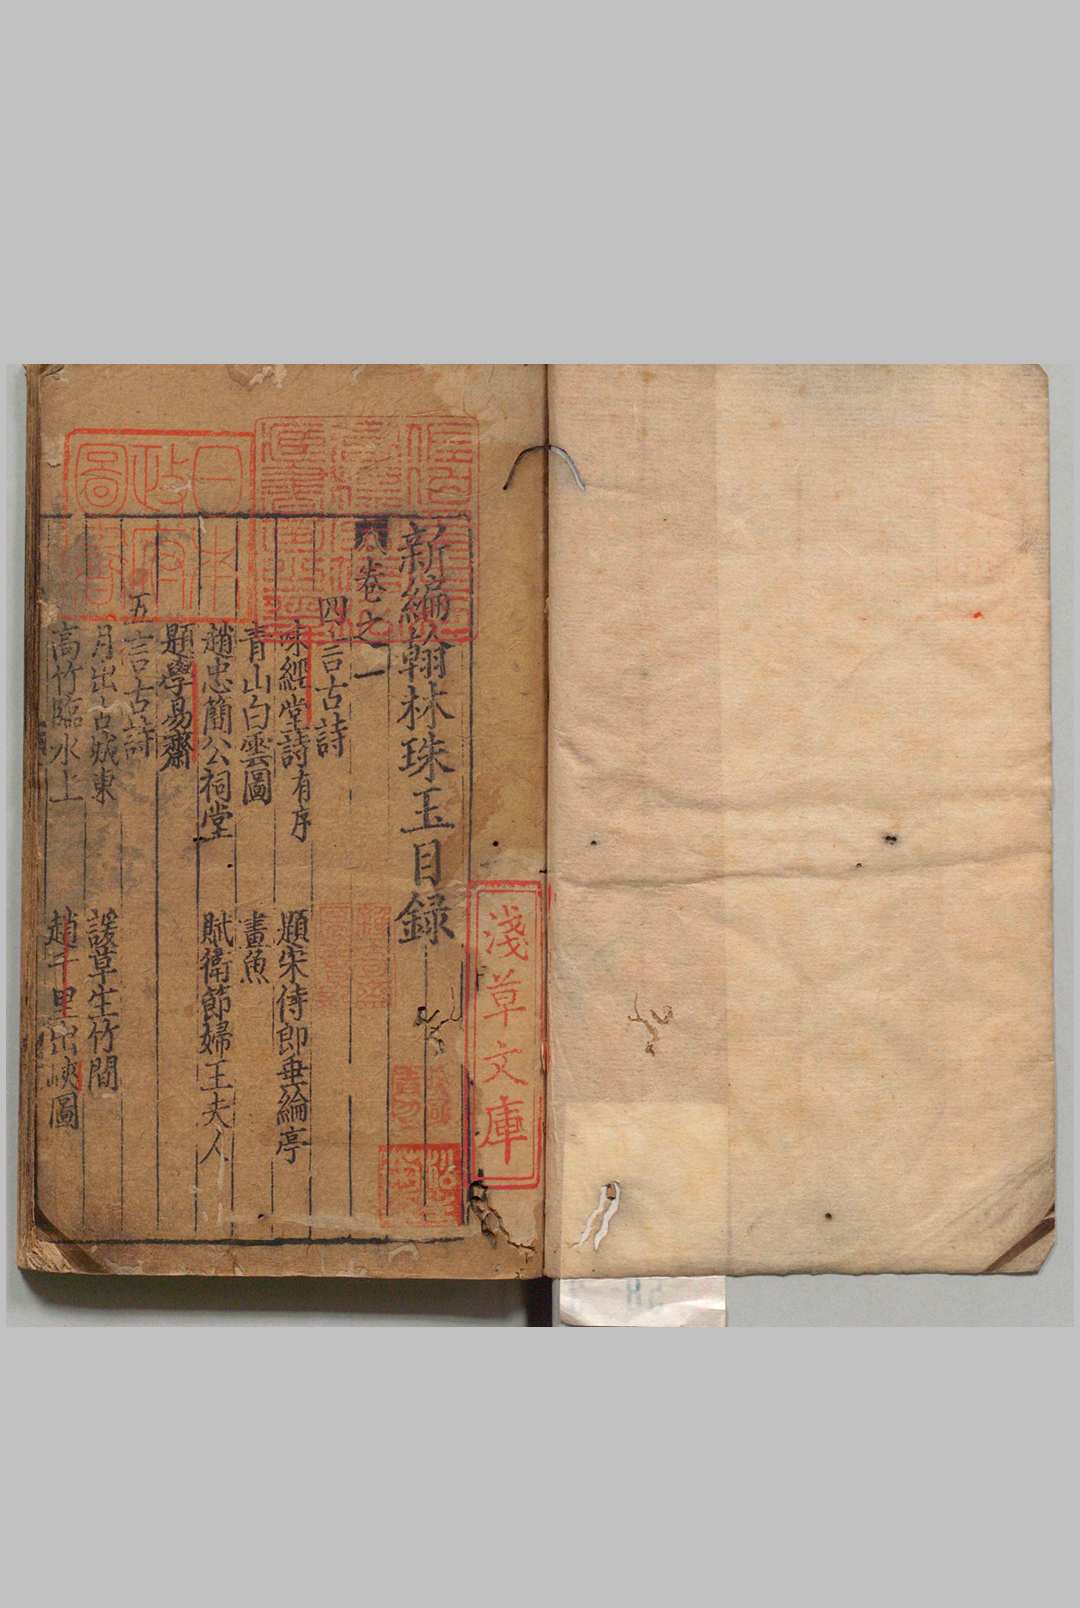 新編翰林珠玉目録
卷之一
四言古詩
味經堂詩有序
題宋侍郎垂綸亭
青山白雲圖
畫魚
趙忠簡公祠堂
賦衛節婦王夫人
題學易齋
五言古詩
月出古城東
諼草生竹間
高竹臨水上
趙千里出峽圖
淺草文庫
日本
政府
圖書